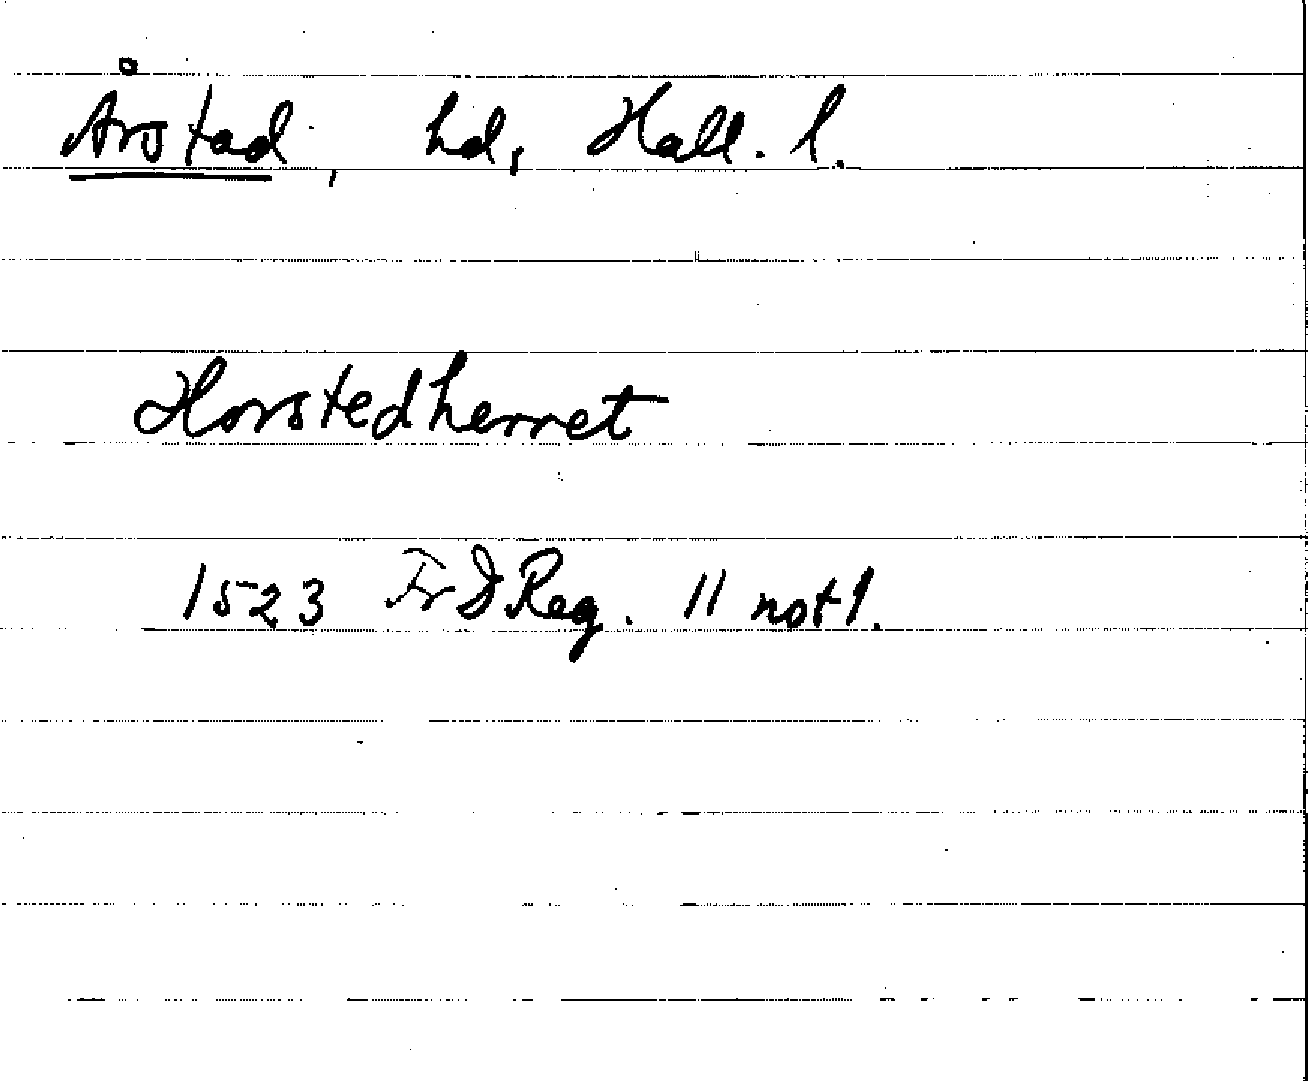 Årstad, hd, Hall. l.
Horstedherret
1523 Fr I Reg. 11 not 1.